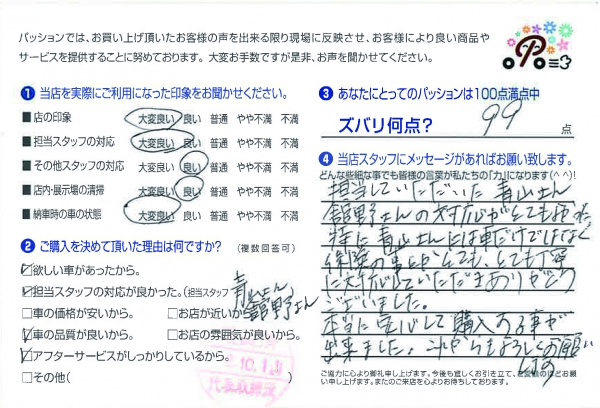 パッションでは、お買い上げ頂いたお客様の声を出来る限り現場に反映させ、お客様により良い商品や
サービスを提供することに努めております。 大変お手数ですが是非、お声を聞かせてください。
❶ 当店を実際にご利用になった印象をお聞かせください。
■ 店の印象 大変良い 良い 普通 やや不満 不満
■ 担当スタッフの対応 大変良い 良い 普通 やや不満 不満
■ その他スタッフの対応 大変良い 良い 普通 やや不満 不満
■ 店内・展示場の清掃 大変良い 良い 普通 やや不満 不満
■ 納車時の車の状態 大変良い 良い 普通 やや不満 不満
❷ ご購入を決めて頂いた理由は何ですか? (複数回答可)
☑欲しい車があったから。
☑担当スタッフの対応が良かった。(担当スタッフ 青山さん
舘野さん
□車の価格が安いから。 □お店が近いから
☑車の品質が良いから。 □お店の雰囲気が良いから。
☑アフターサービスがしっかりしているから。
□その他(
代表取締役
❸ あなたにとってのパッションは100点満点中
ズバリ何点? 99 点
❹ 当店スタッフにメッセージがあればお願い致します。
どんな些細な事でも皆様の言葉が私たちの「力」になります(^^)!
担当していただいた青山さん
舘野さんの対応がとても
特に青山さんには車だけではなく
保険の事にとても、とても丁寧
に対応していただきありがとう
ございました。
本当に安心して購入する事が
出来ました。これからもよろしくお願い
します
ご協力に心より御礼申し上げます。今後も宜しくお引き立て、ご愛顧のほどお願
い申し上げます。またのご来店を心よりお待ちしております。